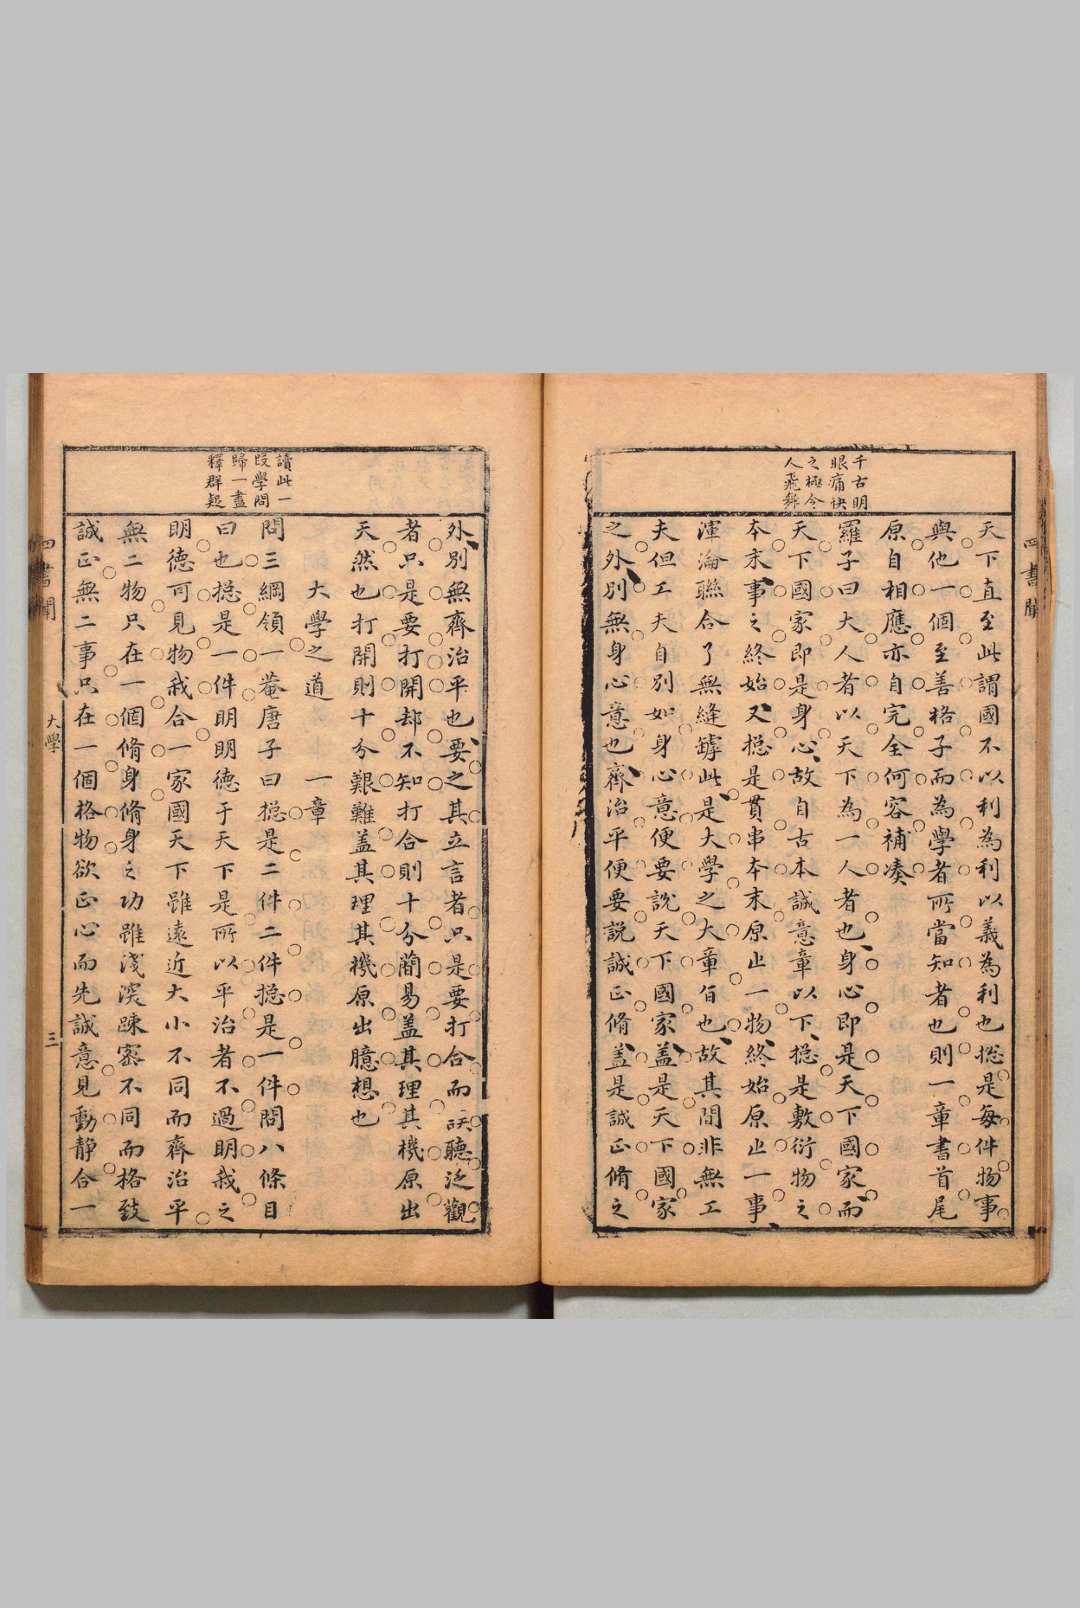 千古明
眼痛快
之極令
人飛舞
天下直至此謂國不以利為利以義為利也揔是每件物事
與他一個至善格子而為學者所當知者也則一章書首尾
原自相應亦自完全何容補湊
羅子曰大人者以天下為一人者也身心即是天下國家而
天下國家即是身心故自古本誠意章以下揔是敷衍物之
本末事之終始又揔是貫串本末原止一物終始原止一事
渾淪聯合了無縫罅此是大學之大章旨也故其間非無工
夫但工夫自別如身心意便要說天下國家蓋是天下國家
之外別無身心意也齊治平便要説誠正脩蓋是誠正脩之
四書聞
讀此一
段學問
歸一盡
釋群疑
外別無齊治平也要之其立言者只是要打合而聽泛觀
者只是要打開却不知打合則十分簡易蓋其理其機原出
天然也打開則十分艱難蓋其理其機原出臆想也
大學之道 一章
問三綱領一菴唐子曰揔是二件二件揔是一件問八條目
曰也揔是一件明明德于天下是所以平治者不過明我之
明德可見物我合一家國天下雖遠近大小不同而齊治平
無二物只在一個脩身脩身之功雖淺深踈密不同而格致
誠正無二事只在一個格物欲正心而先誠意見動靜合一
四書聞 大學 三